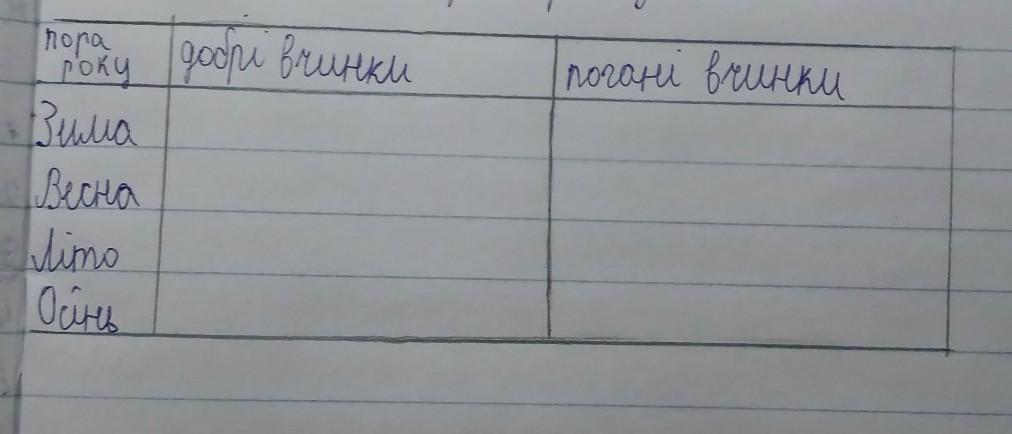 пора року добрі вчинки погані вчинки
Зима
Весна
Літо
Осінь